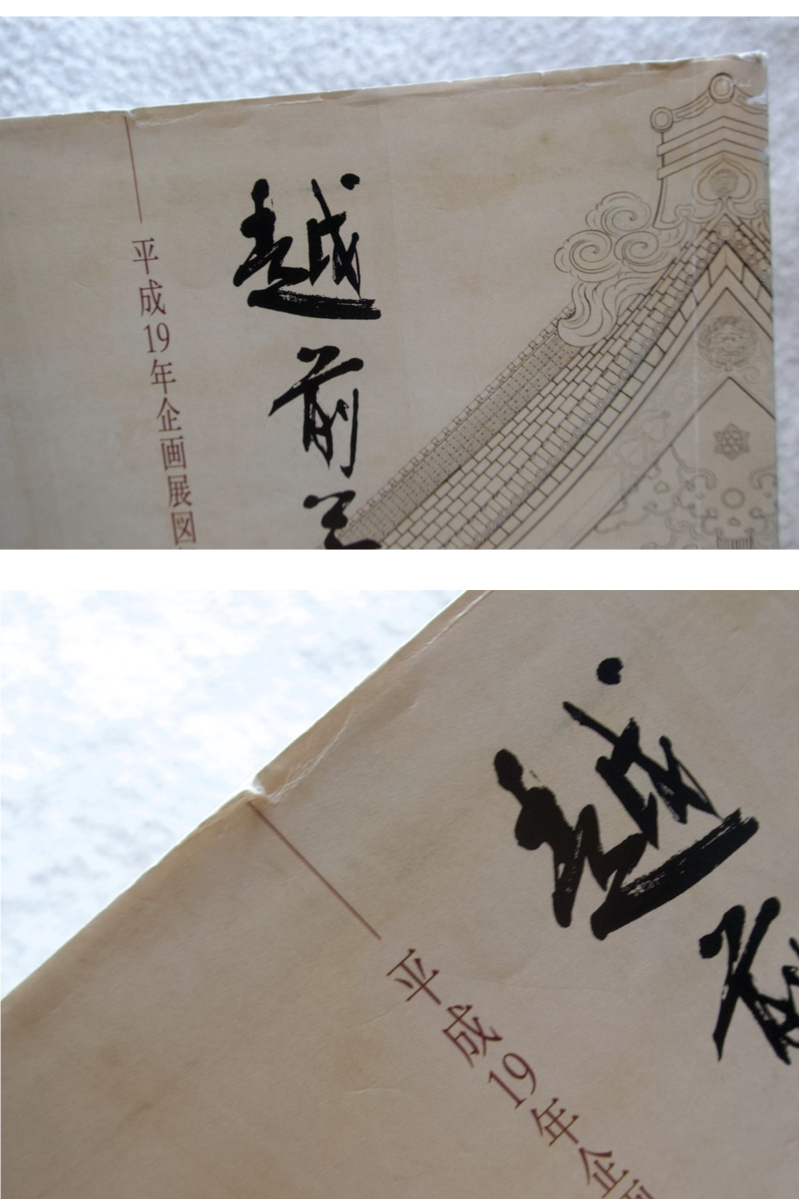 越前
平成19年企画展図
越前
平成19年企画